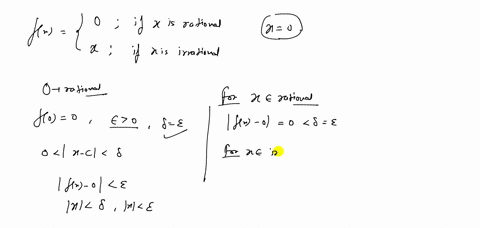 f(x) = { 0 ; if x is rational
x ; if x is irrational
x = 0
0 → rational
f(0) = 0 , ε > 0 , δ = ε
0 < | x - c | < δ
| f(x) - 0 | < ε
|x| < δ , |x| < ε
for x ∈ rational
| f(x) - 0 | = 0 < δ = ε
for x ∈ i